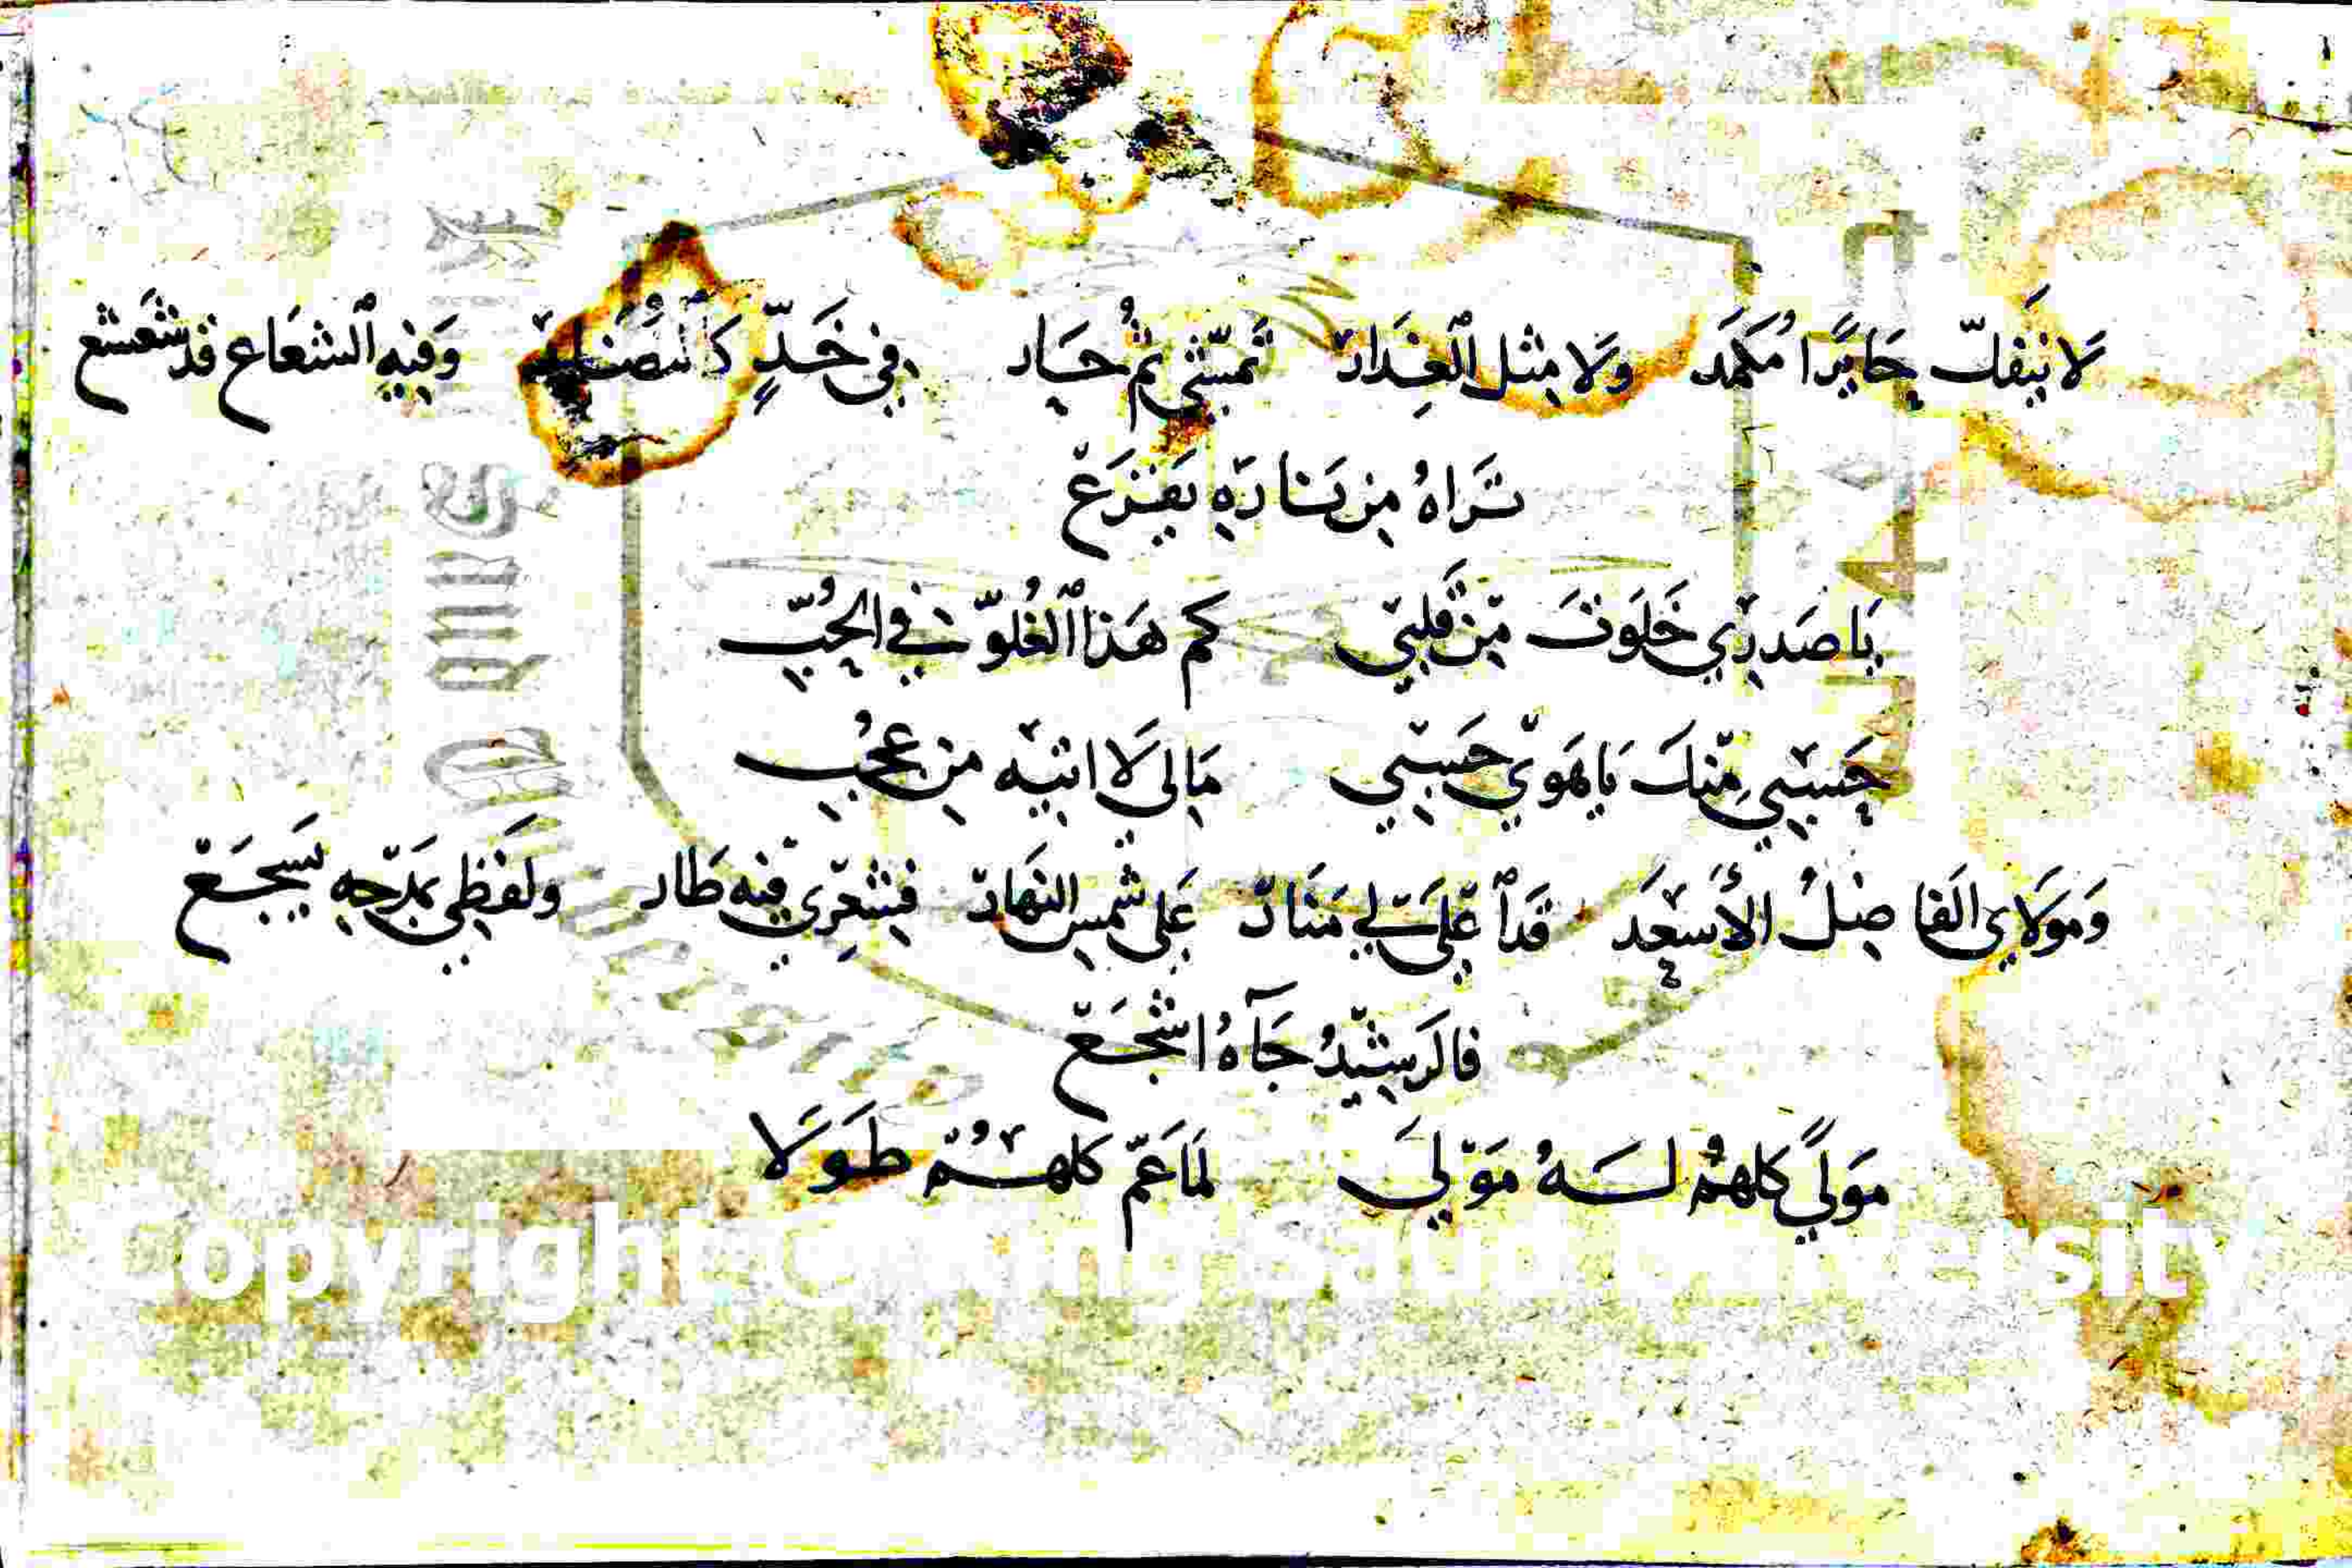 لَا ينفكّ جَايرًا مُكمَد وَلَا مِثل ٱلعِذَار تمشّى ثُم حَار في خَدٍّ وَفيهِ ٱلشعَاع قد شَعشع
تَرَاهُ مِن نَارِهِ يَفزَعْ
يَا صَدري خَلَوتَ مِن قَلبي كم هَذا ٱلغُلوّ في الحُبّ
حَسبي مِنكَ يَا هَوي حَسبي مَالي لَا اتيه مِن عجُب
وَمَولَاي الفَاضِلُ الأسعَد قَد ٱعْلَى لي مَنَار عَلى شمس النهَار فشعري فيه طَار ولفظي بمَدْحِهِ يَسجَعْ
فالرَشيدُ جَآهُ اشجَعْ
مَولىً كلهمُ لَهُ مَوْلى لمَا عَمّ كلهُمْ طَوْلَا
Copyright © King Saud University